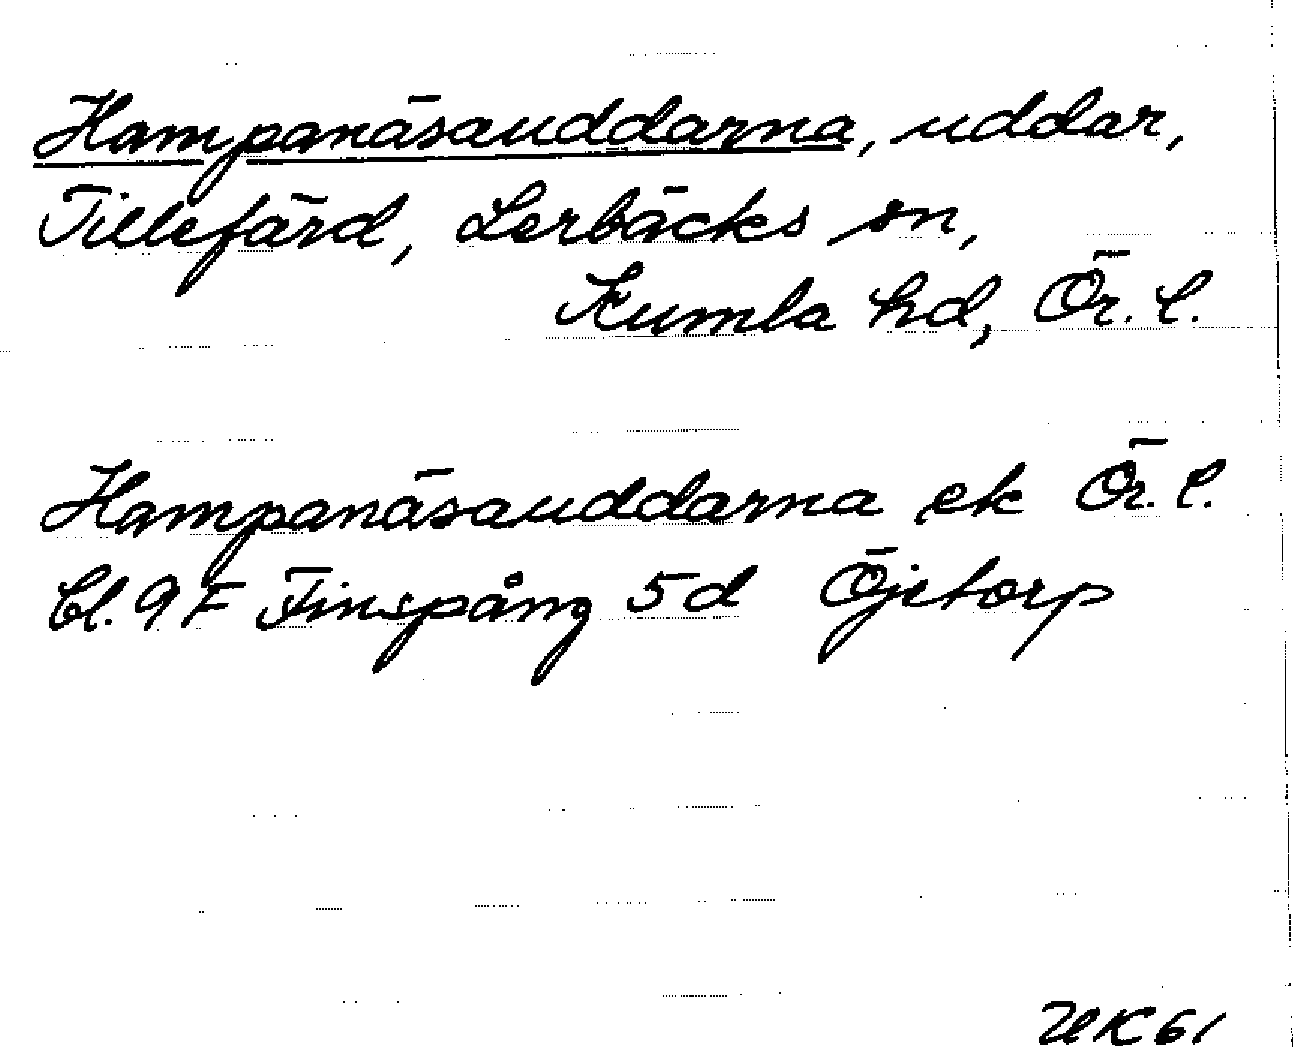 Hampanäsauddarna, uddar,
Tillefärd, Lerbäcks sn,
Kumla hd, Ör. l.
Hampanäsauddarna ek Ör. l.
Bl. 9 F Finspång 5d Öjetorp
UK 61